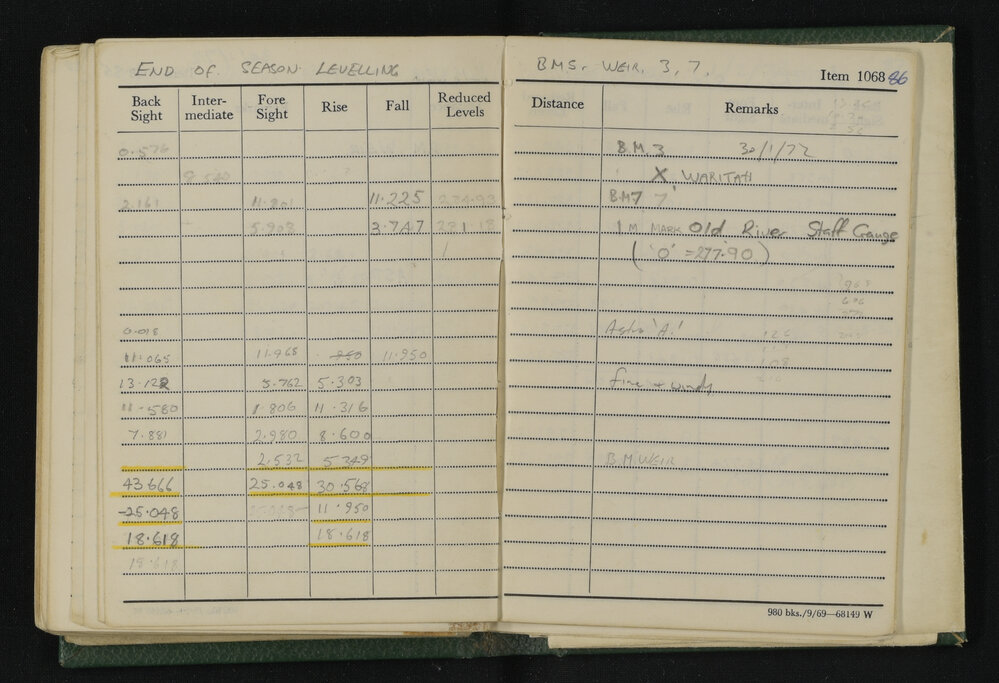 END OF SEASON LEVELLING
Back Sight Inter-mediate Fore Sight Rise Fall Reduced Levels
0.576
2.161 11.801 11.225
5.908 3.747 281.18
0.018
11.065 11.968 950 11.950
13.122 5.762 5.303
11.580 1.806 11.316
7.881 2.980 8.600
2.532 5.349
43.666 25.048 30.568
-25.048 11.950
18.618 18.618
18.618
BMS. WEIR, 3, 7.
Item 1068 86
Distance Remarks
B.M.3 30/1/72
X, WARITAH
BM7 7
1 M MARK Old River Staff Gauge
('0' = 277.90)
Astro 'A'
fine + windy
B.M. WEIR
980 bks./9/69—68149 W